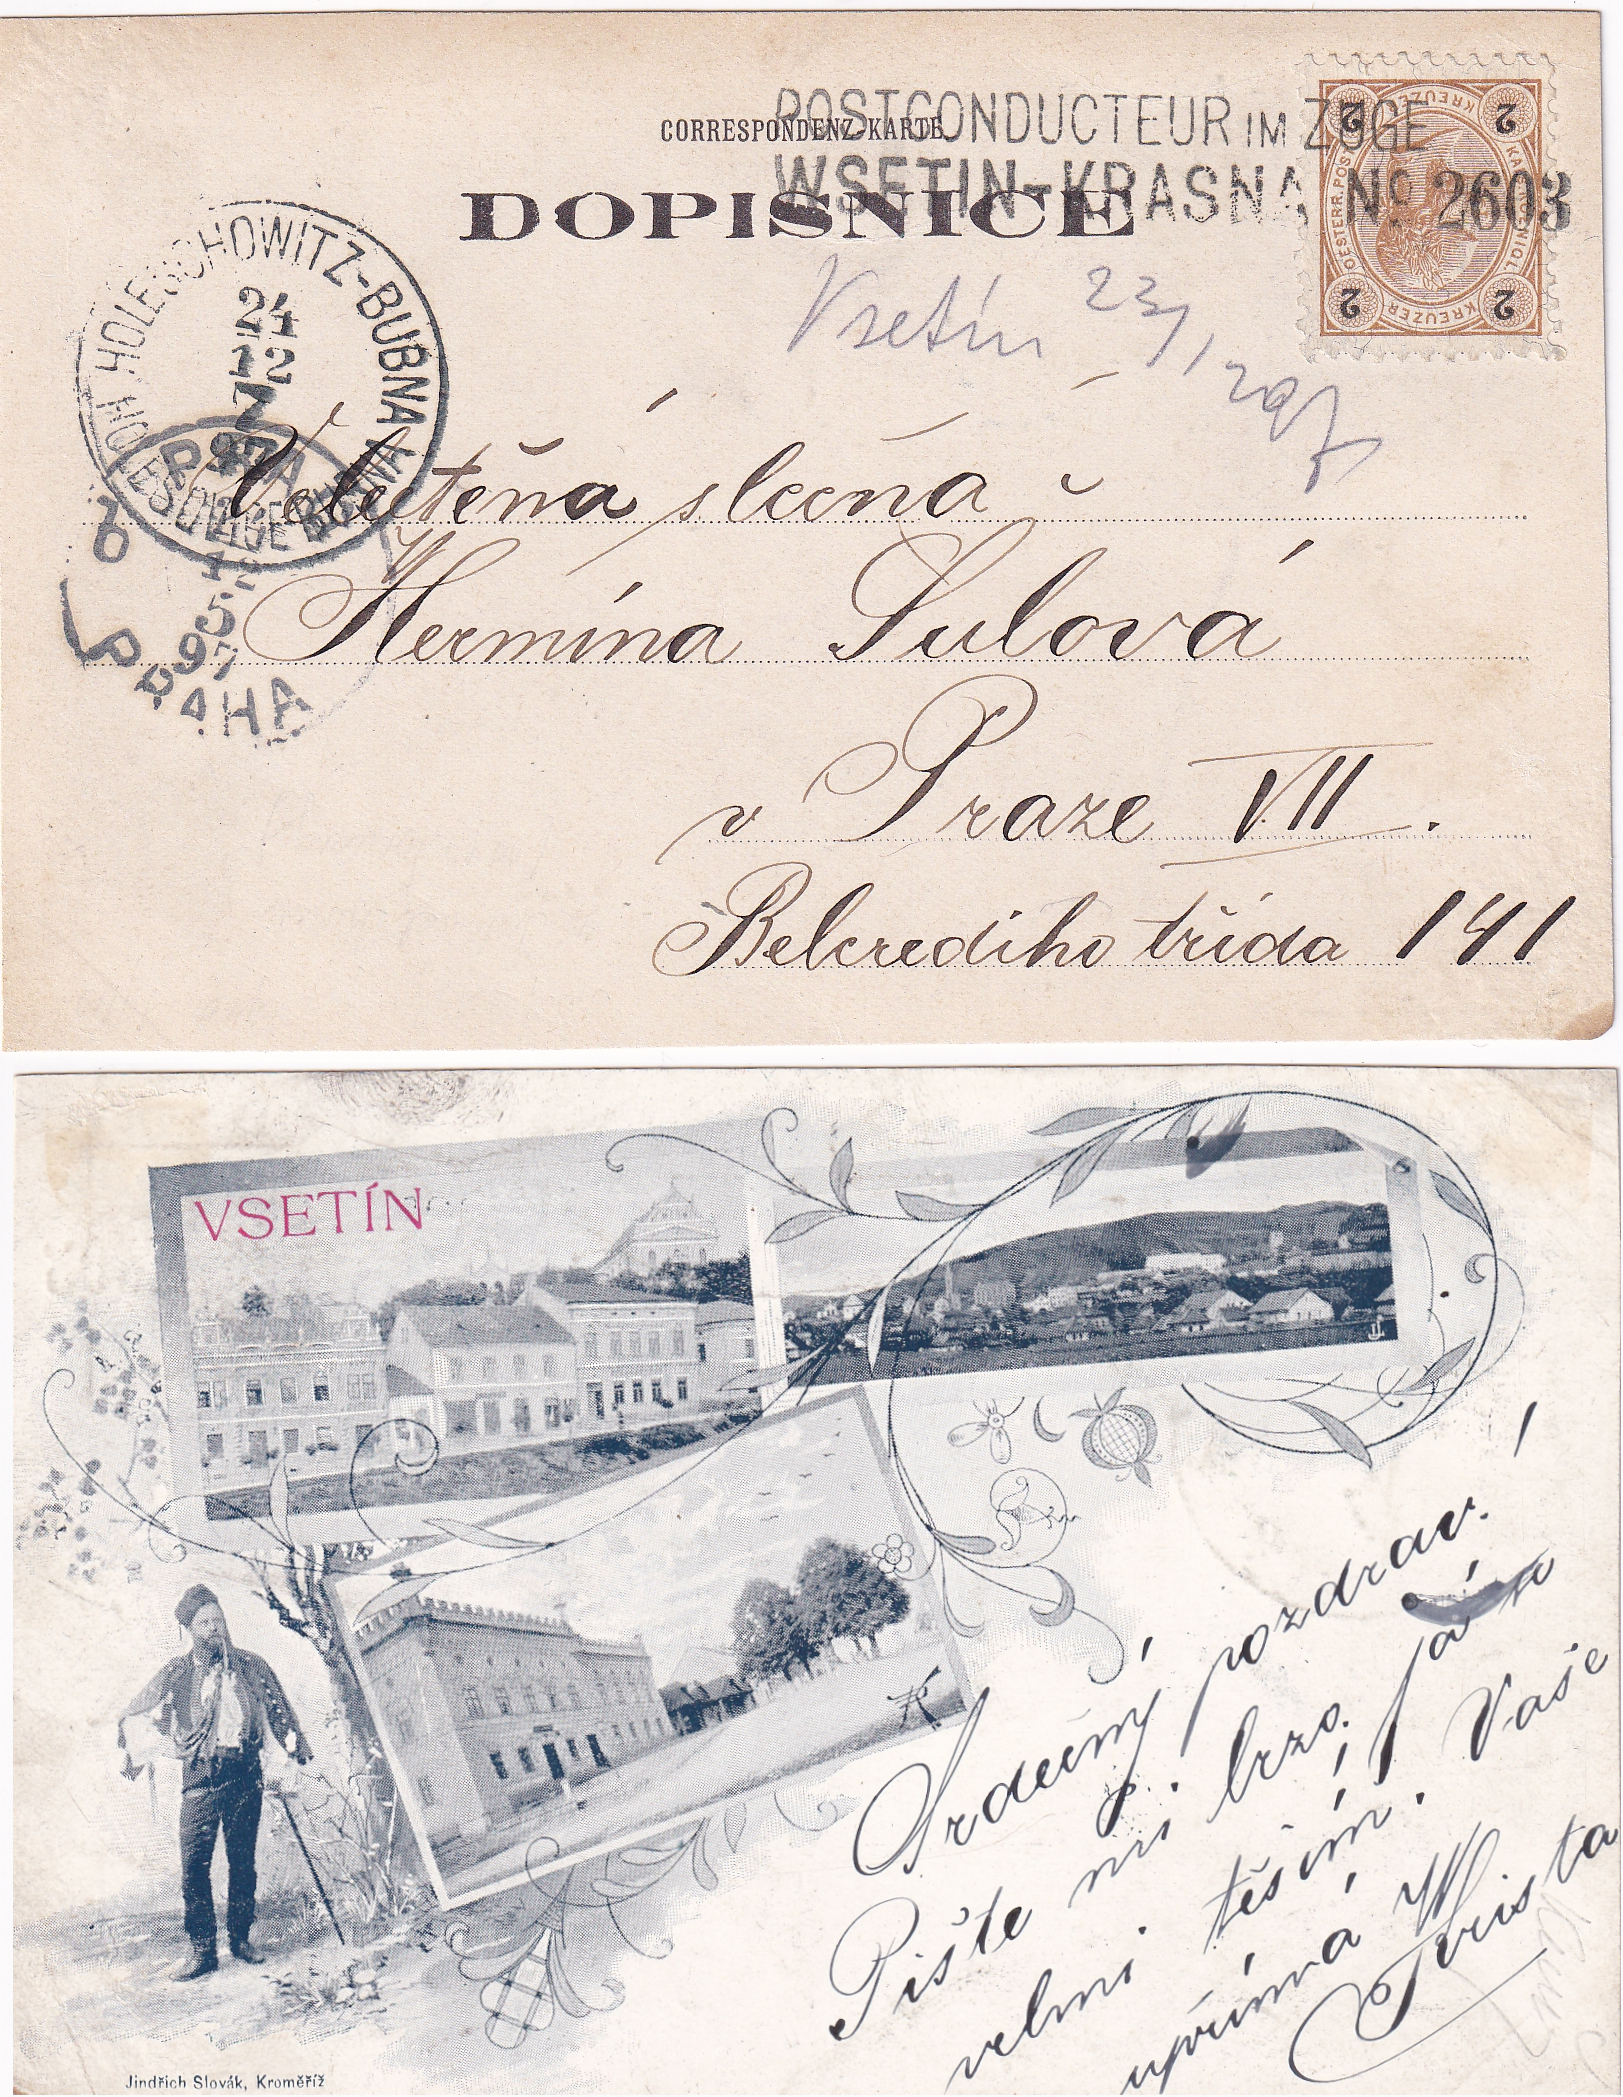 CORRESPONDENZ-KARTE
DOPISNICE
POSTCONDUCTEUR IM ZUGE
WSETIN-KRASNA No. 2603
2 KREUZER 2
OESTERR. POST
2 KREUZER 2
HOLESCHOWITZ-BUBNA
24
12
7
97
HOLEŠOVICE BUBNA
PRAHA
6
12
95
97
Vsetín 23/12 97
Velectěná slečna
Hermína Šulová
v Praze VII.
Belcrediho třída 141
VSETÍN
Srdečný pozdrav!
Pište mi brzo. Já se
velmi těším. Vaše
upřímná
Jindřich Slovák, Kroměříž